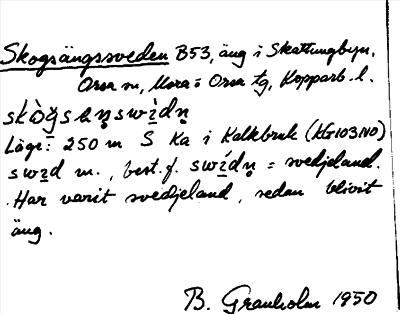 Skogsängssveden B53, äng i Skattungbyn,
Orsa sn, Mora o Orsa tg, Kopparb. l.
Läge: 250 m S Ka i Kalkbruk (KG103NO)
best. f. = svedjeland.
Har varit svedjeland, sedan blivit
äng.
B. Granholm 1950